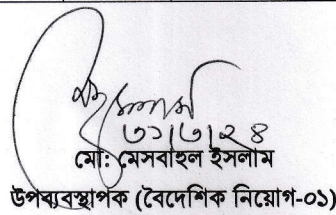 ৩১/৩/২৪
মো: মেসবাহুল ইসলাম
উপব্যবস্থাপক (বৈদেশিক নিয়োগ-০১)